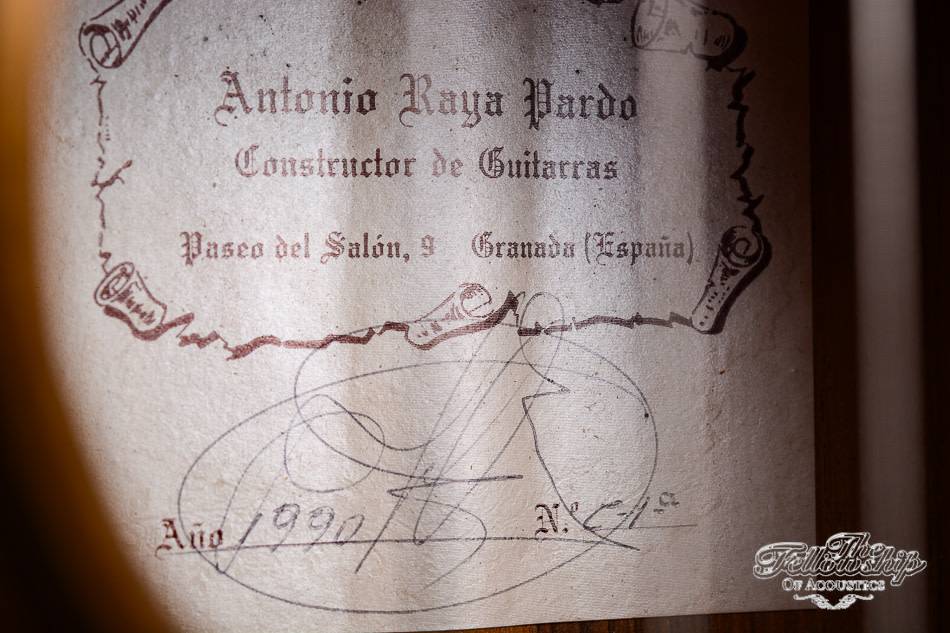 Antonio Raya Pardo
Constructor de Guitarras
Paseo del Salón, 9 Granada (España)
Año 1990 N.º C-1ª
The
Fellowship
Of Acoustics